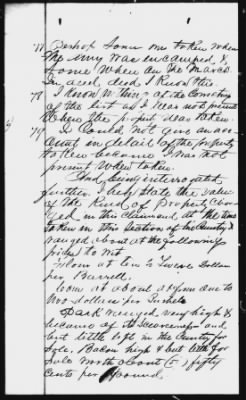 77 Perhaps Some one taken when
the army was incamped &
Some when on the March
in deed did I Know this.
78 I Know nothing at the
of the last as I was not present
When the property was taken.
79 I Could not give an acc
ount in detail of the property
taken because I was not
present when taken.
And being interrogated
further I Say State the value
of the Kind of Property Char
ged in this claim and at the time
taken in this Section of the Country &
ranged about at the following
prices to wit
Flour at ten to Twelve Dollars
per Barrell.
Corn at about a from one to
two dollars per Bushel.
Pork ranged very high &
because of its Scarceness and
but little left in the Country for
Sale, Bacon high & but little for
Sale worth about fifty
Cents per Pound.